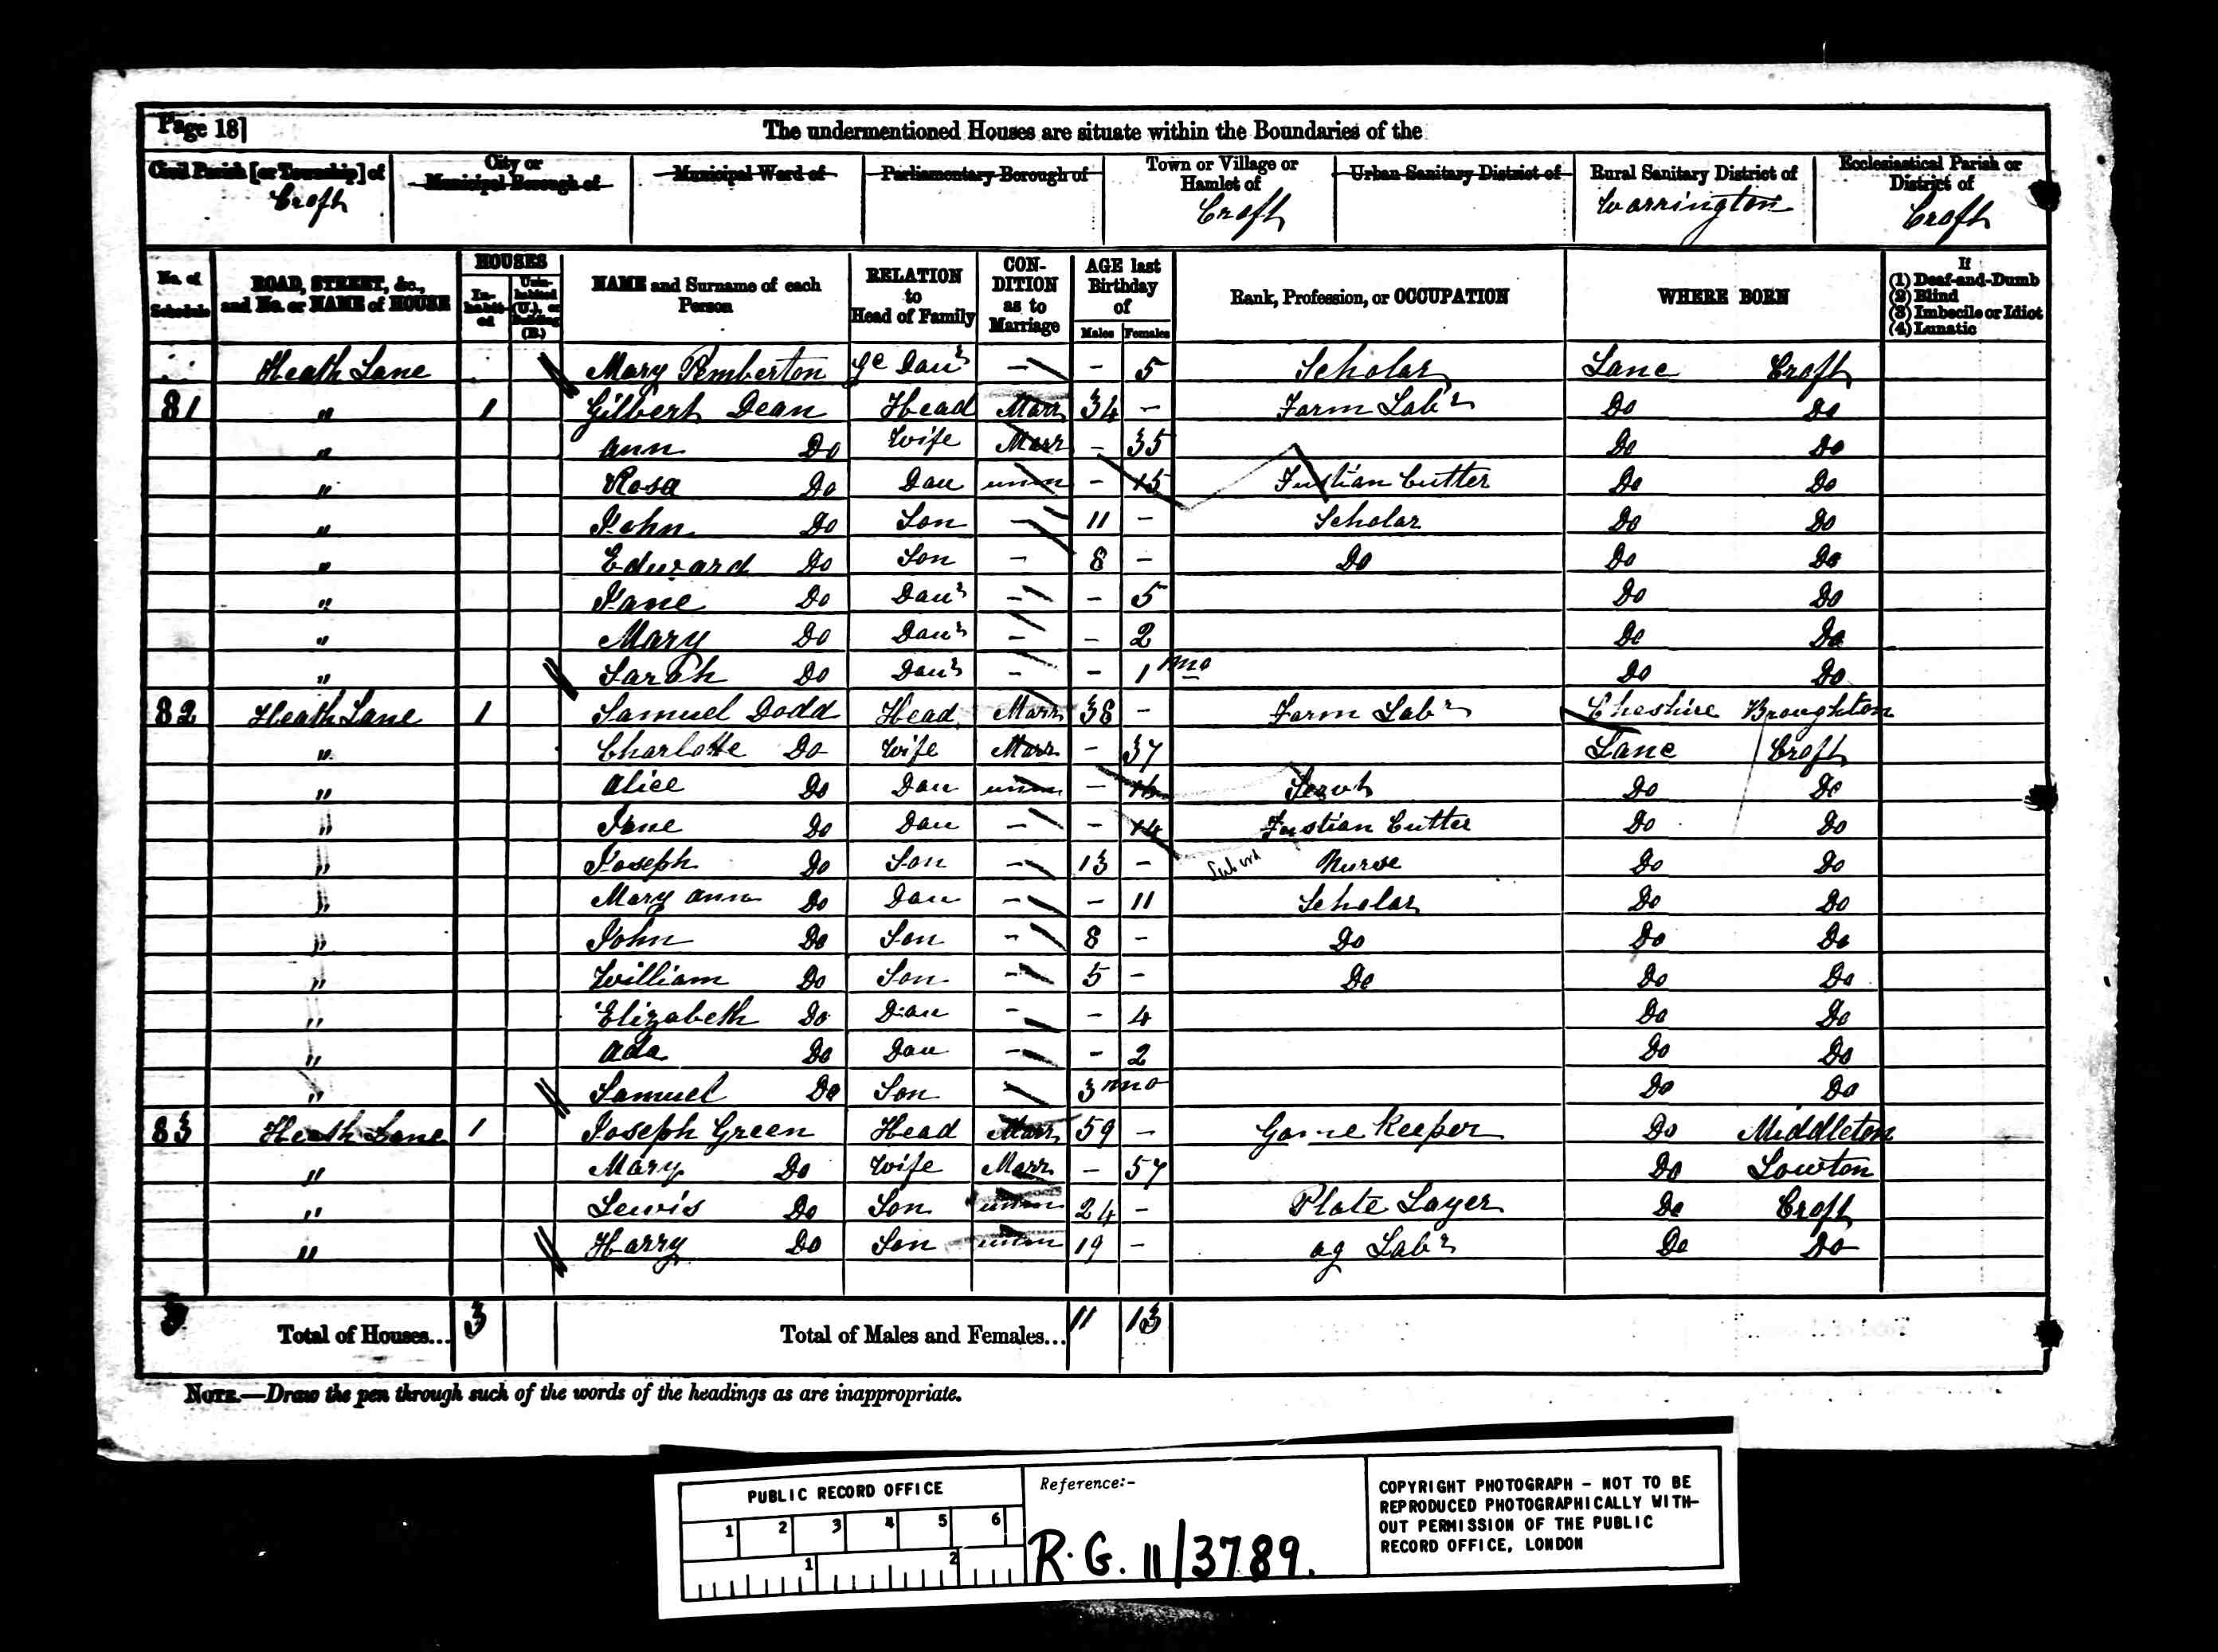 Page 18]
The undermentioned Houses are situate within the Boundaries of the
Civil Parish [or Township] of City or Municipal Borough of Municipal Ward of Parliamentary Borough of Town or Village or Hamlet of Urban Sanitary District of Rural Sanitary District of Ecclesiastical Parish or District of
Croft Croft Warrington Croft
No. of Schedule ROAD, STREET, &c., and No. or NAME of HOUSE HOUSES Inhabited Uninhabited (U.), or Building (B.) NAME and Surname of each Person RELATION to Head of Family CONDITION as to Marriage AGE last Birthday of Males Females Rank, Profession, or OCCUPATION WHERE BORN If (1) Deaf-and-Dumb (2) Blind (3) Imbecile or Idiot (4) Lunatic
Heath Lane Mary Pemberton Ge Daur - - 5 Scholar Lanc Croft
81 " 1 Gilbert Dean Head Marr 34 - Farm Labr Do Do
" Ann Do Wife Marr - 35 Do Do
" Rosa Do Dau unm - 15 Fustian Cutter Do Do
" John Do Son - 11 - Scholar Do Do
" Edward Do Son - 8 - Do Do Do
" Jane Do Daur - - 5 Do Do
" Mary Do Daur - - 2 Do Do
" Sarah Do Daur - - 1 mo Do Do
82 Heath Lane 1 Samuel Dodd Head Marr 38 - Farm Labr Cheshire Broughton
" Charlotte Do Wife Marr - 37 Lanc Croft
" Alice Do Dau unm - 16 Servt Do Do
" Jane Do Dau - - 14 Fustian Cutter Do Do
" Joseph Do Son - 13 - Nurse Do Do
" Mary Ann Do Dau - - 11 Scholar Do Do
" John Do Son - 8 - Do Do Do
" William Do Son - 5 - Do Do Do
" Elizabeth Do Dau - - 4 Do Do
" Ada Do Dau - - 2 Do Do
" Samuel Do Son 3 mo Do Do
83 Heath Lane 1 Joseph Green Head Marr 59 - Game Keeper Do Middleton
" Mary Do Wife Marr - 57 Do Lowton
" Lewis Do Son unm 24 - Plate Layer Do Croft
" Harry Do Son unm 19 - ag Labr Do Do
3 Total of Houses... 3 Total of Males and Females... 11 13
NOTE.—Draw the pen through such of the words of the headings as are inappropriate.
PUBLIC RECORD OFFICE
1 2 3 4 5 6
1 2
Reference:-
R.G. 11/3789.
COPYRIGHT PHOTOGRAPH - NOT TO BE
REPRODUCED PHOTOGRAPHICALLY WITH-
OUT PERMISSION OF THE PUBLIC
RECORD OFFICE, LONDON